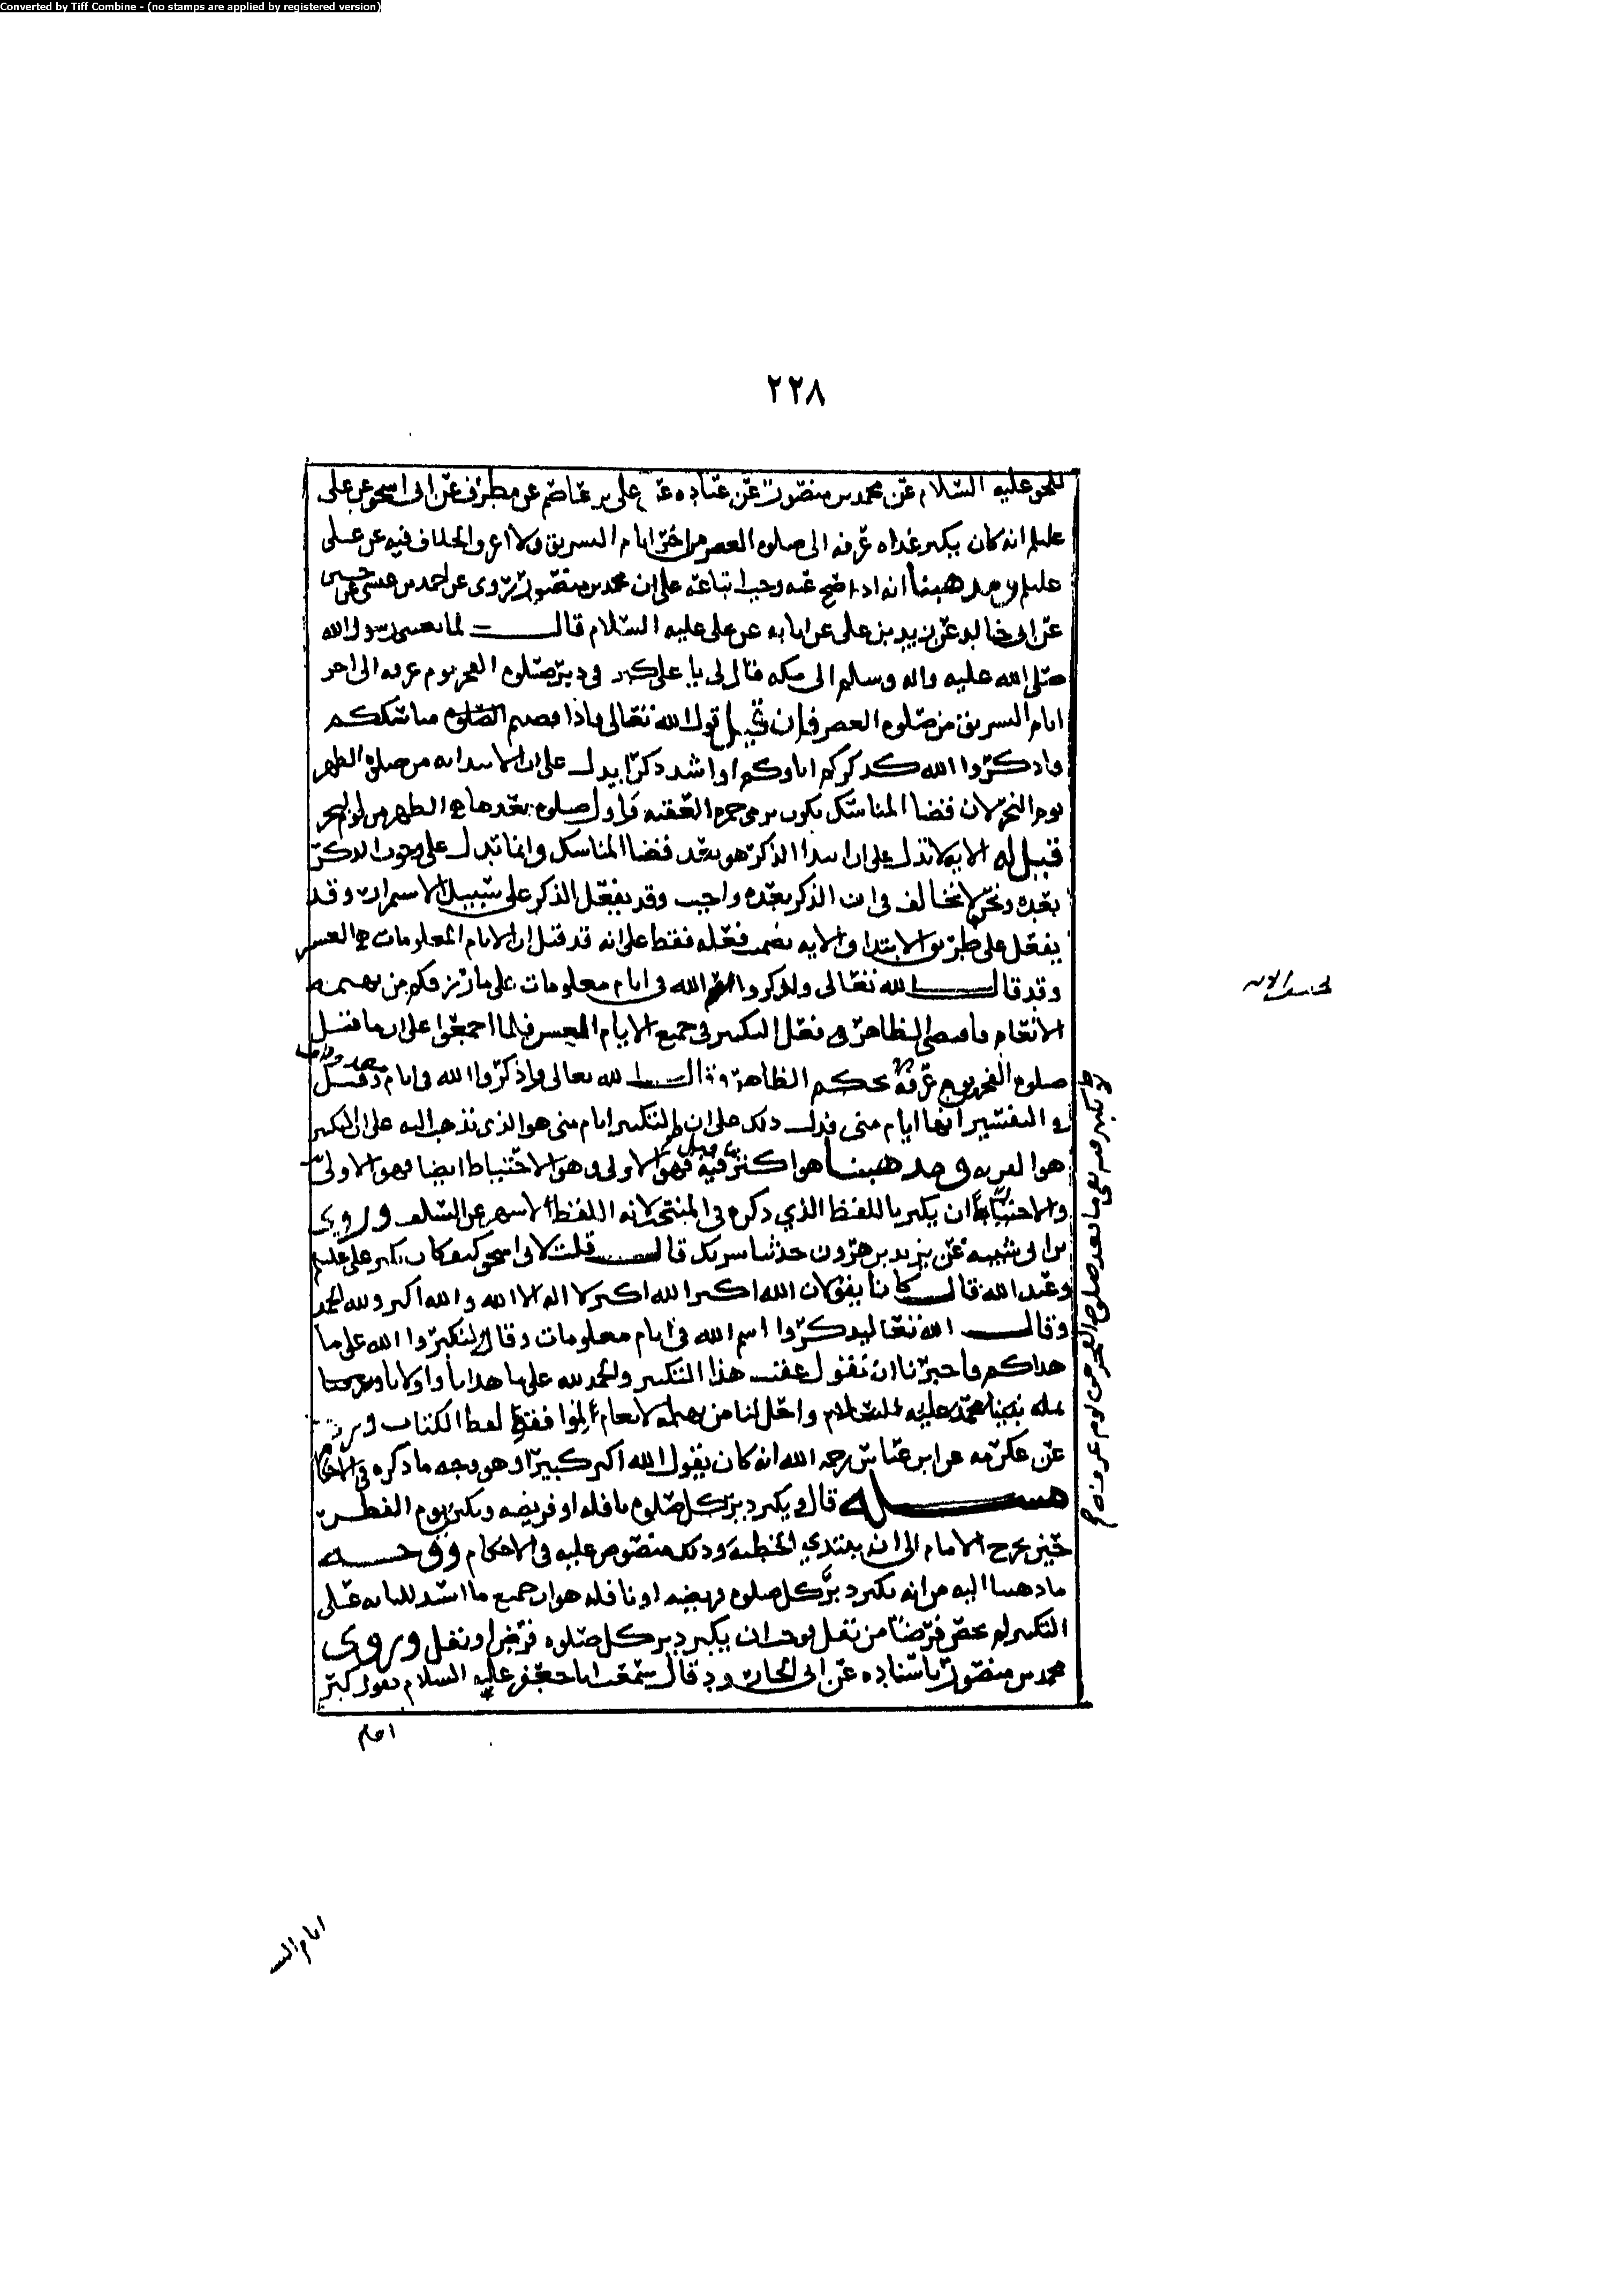 Converted by Tiff Combine - (no stamps are applied by registered version)
٢٢٨
للحق عليه السلام عن محمد بن منصور عن عباده عن علي بن عاصم عن مطرف عن ابي اسحق عن علي
عليلم انه كان يكبر غداه عرفه الى صلوه العصر من اخر ايام التشريق ولا اعرف الخلاف فيه عن علي
عليلم ومذهبنا انه اذا صح عنه وجب اتباعه على ان محمد بن منصور روى عن احمد بن عيسى عن حسين
عن ابي خالد عن زيد بن علي عن ابايه عن علي عليه السلام قال لما بعثني رسول الله
صلى الله عليه واله وسلم الى مكه فقال لي يا علي كبر في دبر صلوه الفجر يوم عرفه الى اخر
ايام التشريق من صلوه العصر فإن قيل قول الله تعالى فاذا قضيتم الصلوه مناسككم
فاذكروا الله كذكركم اباوكم او اشد ذكرا يدل على ان الابتدا به من صلوه الظهر
يوم النحر لان قضا المناسك يكون برمي جمره العقبه واول صلوه بعدها هي الظهر من يوم النحر
قيل له الايه لا تدل على ان ابتدا الذكر هو بعد قضا المناسك وانما تدل على وجوب الذكر
بعده ونحن لا نخالف في ان الذكر بعده واجب وقد يفعل الذكر على سبيل الاستمرار وقد
يفعل على طريق الابتدا والايه تضمنت فعله فقط على انه قد قيل ان الايام المعلومات هي العشر
وقد قال الله تعالى ويذكروا اسم الله في ايام معلومات على ما رزقهم من بهيمه
الانعام فاقتضى الظاهر في فعل التكبير في جميع الايام العشر فلما اجمعوا على ان ما قبل
صلوه الفجر يوم عرفه بحكم الظاهر وقال الله تعالى واذكروا الله في ايام معدودات قيل
في التفسير انها ايام منى فدل ذلك على ان التكبير ايام منى هو الذي نذهب اليه على ان التكبير
هو القربه ومذهبنا هو اكثر فيه فهو الاولى وهو الاحتياط ايضا فهو الاولى
والاحتياط ان يكبر باللفظ الذي ذكره في المنتخب لانه اللفظ الاشهر عن السلف وروى
بن ابي شيبه عن يزيد بن هرون حدثنا شريك قال قلت لابي اسحق كيف كان يكبر علي عليلم
وعبد الله قال كانا يقولان الله اكبر الله اكبر لا اله الا الله والله اكبر ولله الحمد
وقال الله تعالى ليذكروا اسم الله في ايام معلومات وقال لتكبروا الله على ما
هداكم فاخبرنا ان نقول عقيب هذا التكبير والحمد لله على ما هدانا واولانا
نبينا محمد عليه السلام واحل لنا من بهيمه الانعام لموافقه لفظ الكتاب
عن عكرمه عن ابن عباس رحمه الله انه كان يقول الله اكبر كبيرا وهو وجه ما ذكره في الاحكام
مسله قال ويكبر دبر كل صلوه نافله او فريضه ويكبر يوم الفطر
حين يخرج الامام الى ان يبتدي الخطبه وذلك منصوص عليه في الاحكام ووجه
ما ذهبنا اليه من انه يكبر دبر كل صلوه فريضه او نافله هو ان جميع ما استدللنا به على
التكبير لم يخص فرضا من نفل فوجب ان يكبر دبر كل صلوه فرض او نفل وروى
محمد بن منصور باسناده عن ابي الجارود قال سمعت ابا جعفر عليه السلام يقول كبر
ايام
لا تكبير فيه بقي ما بعد صلوه الفجر من يوم عرفه